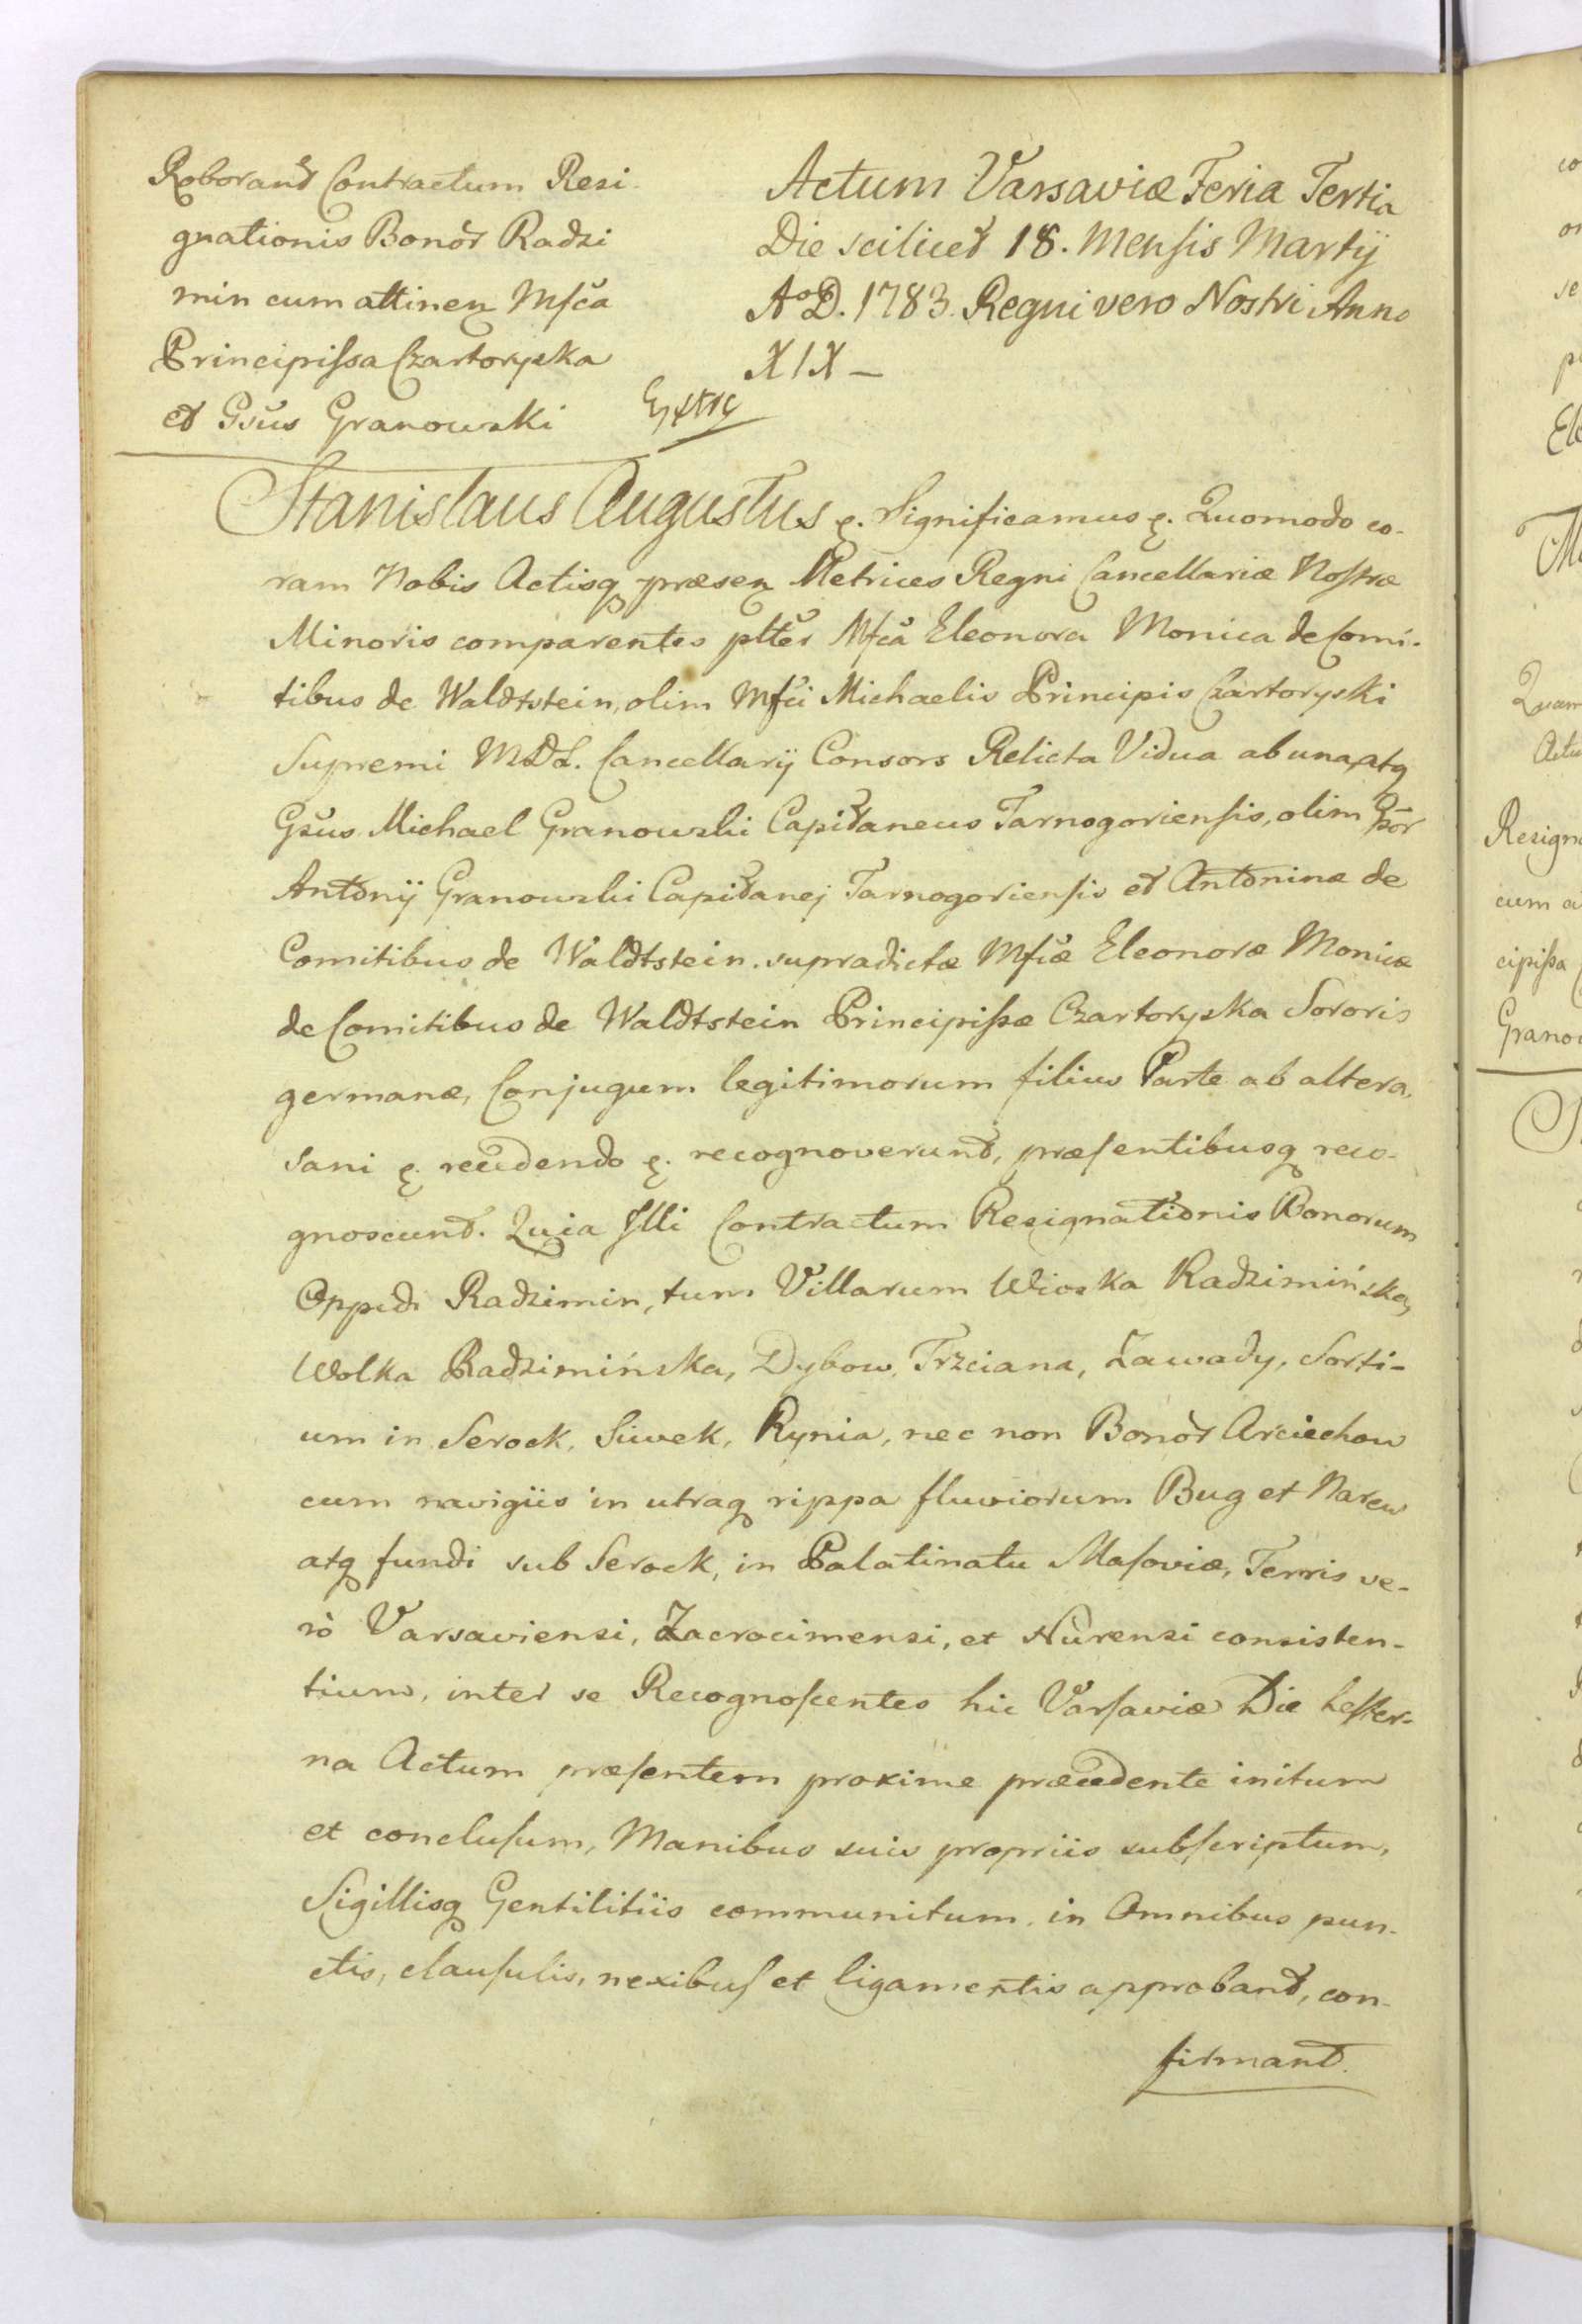 Roborant Contractum Resi-
gnationis Bonor Radzi
min cum attinen Mfca
Principissa Czartoryska
et Gsus Granowski
Extrc
Actum Varsaviæ Feria Tertia
Die scilicet 18. Mensis Martij
AoD. 1783. Regni vero Nostri Anno
XIX -
Stanislaus Augustus e. Significamus e. Quomodo co-
ram Nobis Actisq præsen Metrices Regni Cancellariæ Nostræ
Minoris comparentes plter Mfca Eleonora Monica de Comi-
tibus de Waldtstein, olim Mfci Michaelis Principis Czartoryski
Supremi MDL. Cancellarij Consors Relicta Vidua ab una, atq
Gsus Michael Granowski Capitaneus Tarnogoriensis, olim Gsor
Antonij Granowski Capitanej Tarnogoriensis et Antoninæ de
Comitibus de Waldtstein. supradictæ Mfcæ Eleonoræ Monicæ
de Comitibus de Waldtstein Principissæ Czartoryska Sororis
germanæ, Conjugum legitimorum filius Parte ab altera,
sani e. recedendo e. recognoverunt, præsentibusq reco-
gnoscunt. Quia Illi Contractum Resignationis Bonorum
Oppidi Radzimin, tum Villarum Wioska Radzimińska,
Wolka Radzimińska, Dybow, Trzciana, Zawady, Sorti-
um in Serock, Siwek, Rynia, nec non Bonor Arciechow
cum navigiis in utraq rippa fluviorum Bug et Narew
atq fundi sub Serock, in Palatinatu Masoviæ, Terris ve-
rò Varsaviensi, Zacrocimensi, et Nurensi consisten-
tium, inter se Recognoscentes hic Varsaviæ Die hester-
na Actum præsentem proxime præcedente initum
et conclusum, Manibus suis propriis subscriptum,
Sigillisq Gentilitiis communitum, in Omnibus pun-
ctis, clausulis, nexibus et ligamentis approbant, con-
firmant.